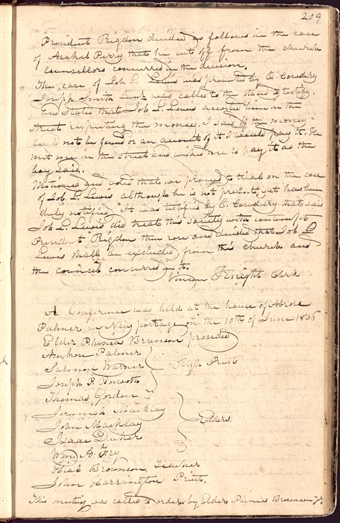 209
President Rigdon decided as follows in the case
of Asahel Perry that he be cut off from the church
Counsellors concurred in the decision.
The case of Job L. Lewis was presented by O. Cowdery
Joseph Smith was called to the stand & testify.
and States that Job L. Lewis accosted him on the
Street respecting the money. I said if the money
could not be found or an account of it I would pay it. He
met me in the Street and wished me to pay it as the
boy said.
Motioned and voted that we proceed to trial on the case
of Job L. Lewis although he is not present, yet has been
duly notified. It was testified by O. Cowdery that said
Job L. Lewis did treat this society with contempt
President Rigdon then rose and decided that Job L
Lewis shall be excluded from this church and
the councils concurred in it.
Vinson Knight Clerk
A Conference was held at the house of Abrose
Palmer in New portage on the 10th of June 1835
Elder Phineas Brunson presided
Ambrose Palmer
Salmon Warner High Priest
Joseph P. Hmooth
Thomas Gordon
Jeremiah Mackley
John Mackley Elders.
Isaac Dutcher
Wm A Fry
Brownson, Teacher
John Harrington Priest,
This meeting was called to order by Elder Phineas Brunson Jr